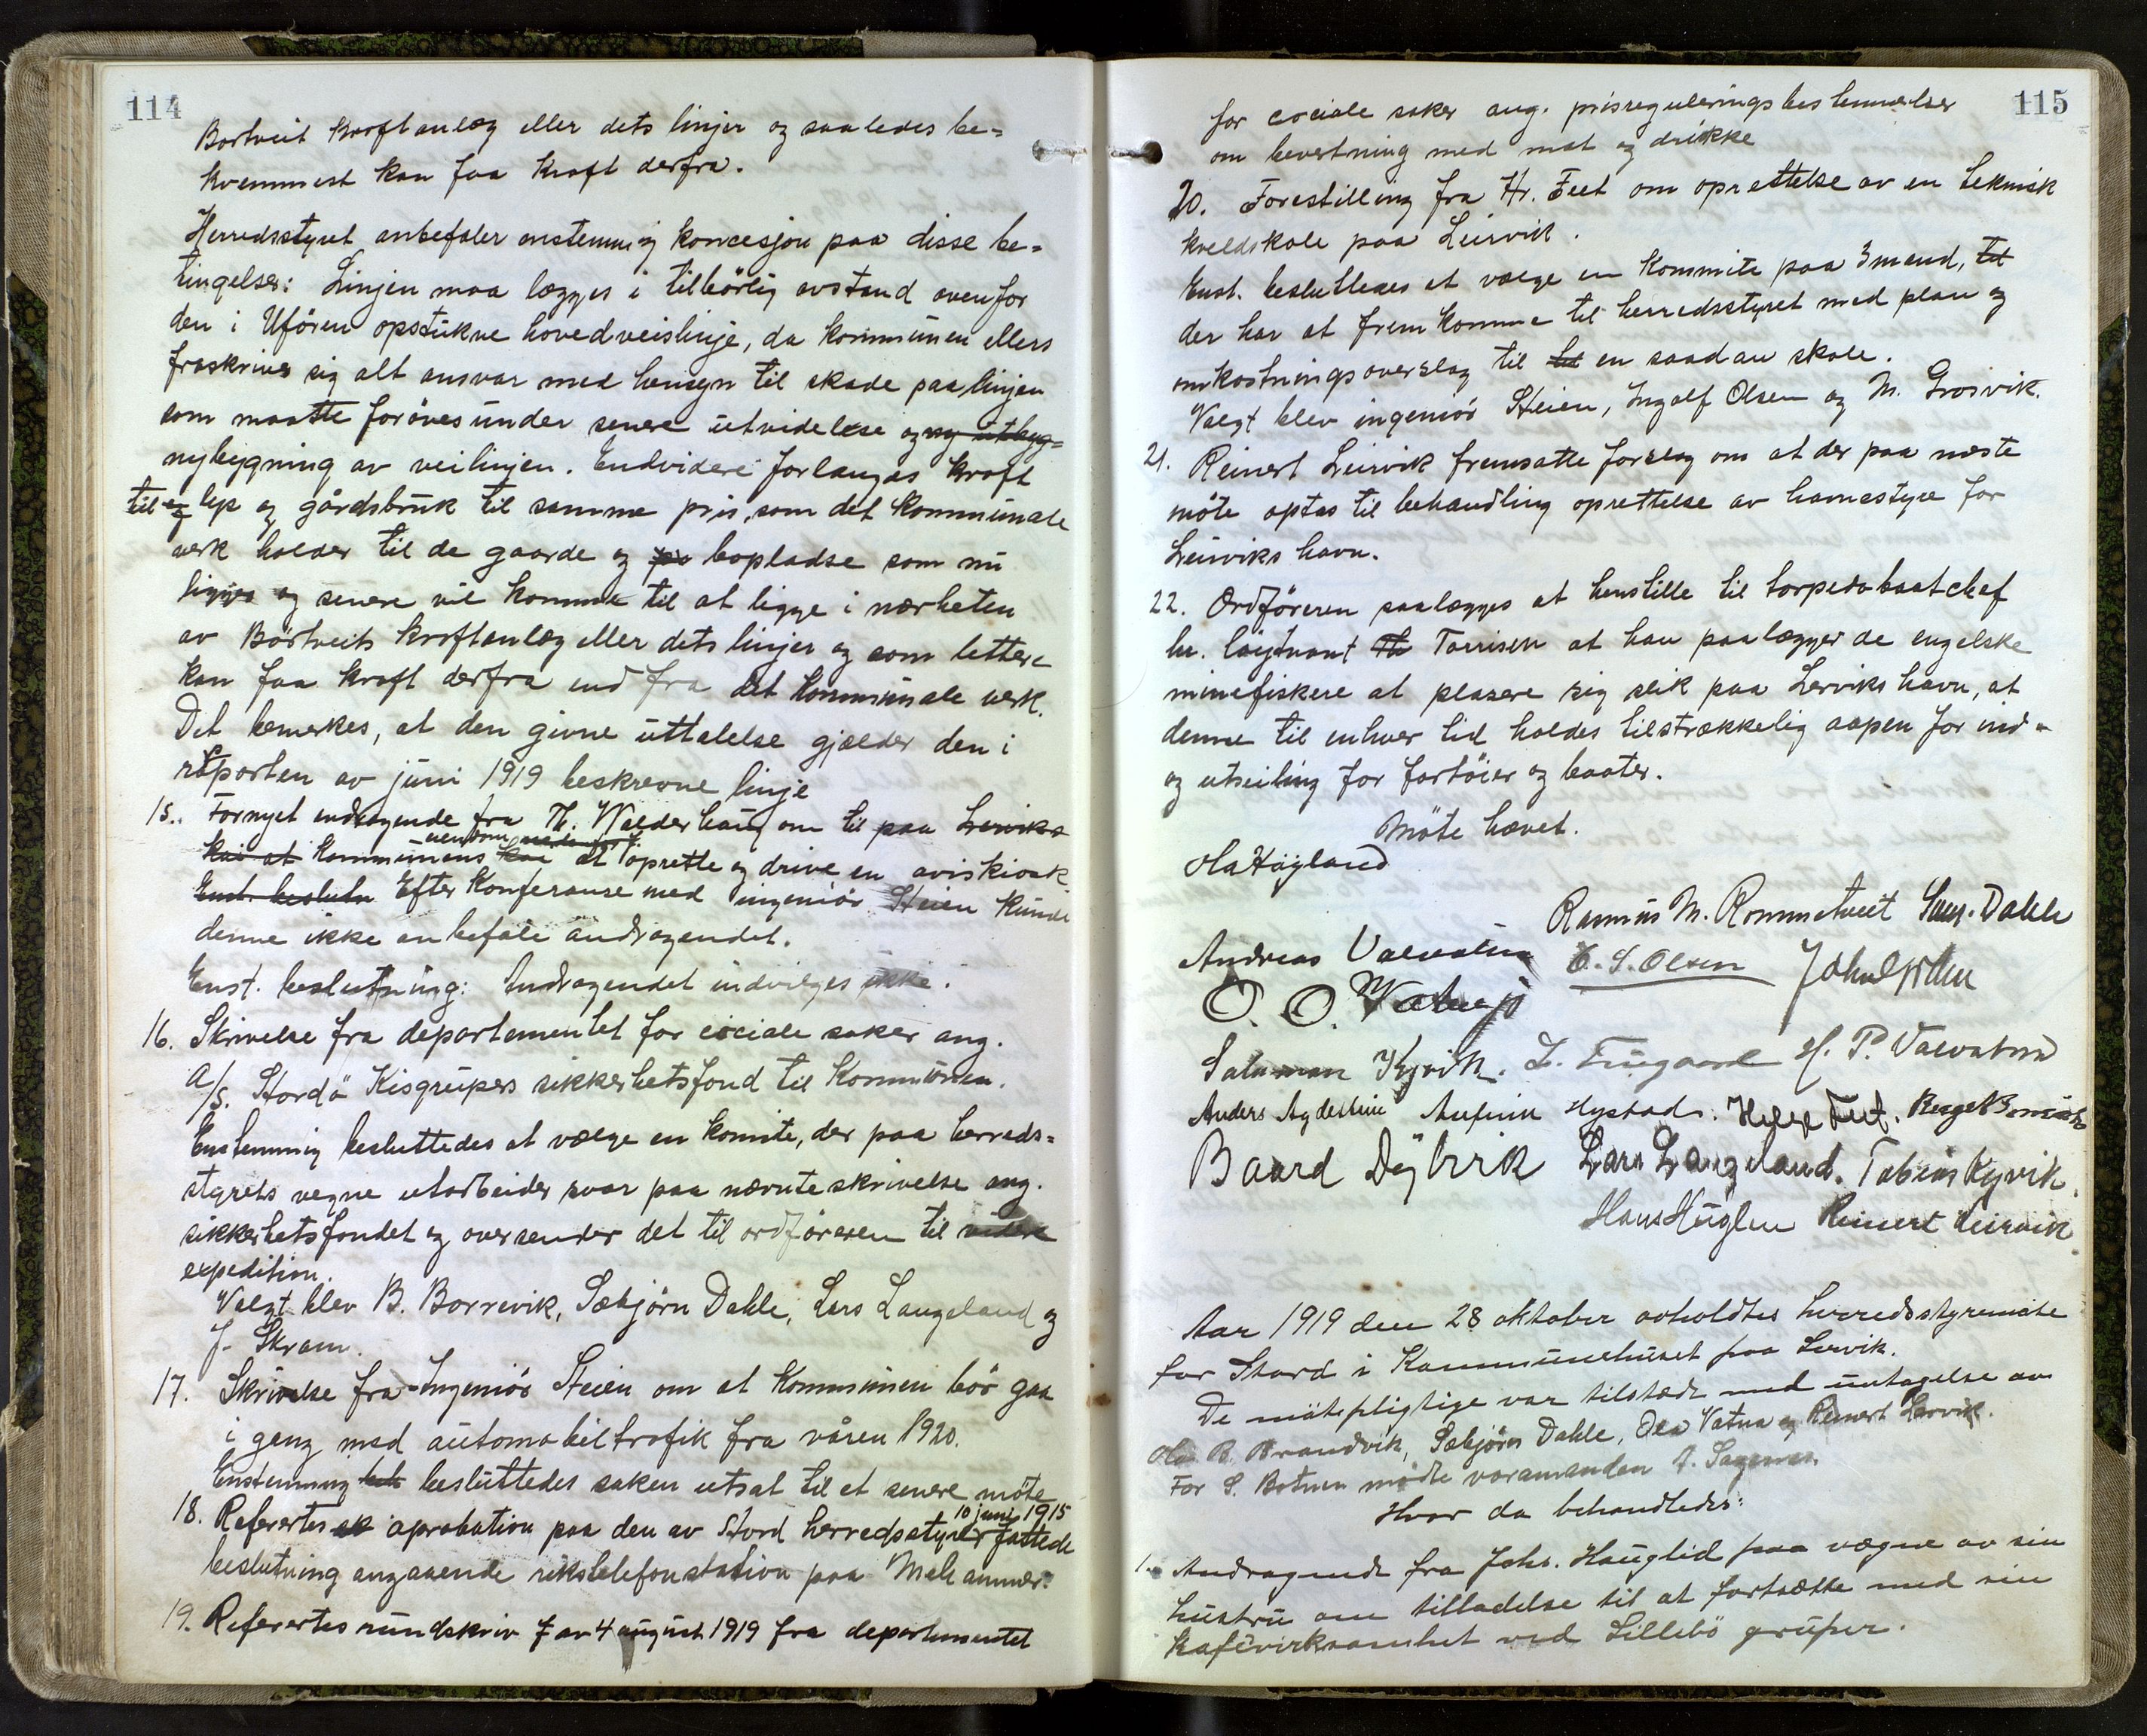 114
Bortveit kraftanlæg eller dets linjer og saaledes be=
kvemmest kan faa kraft derfra.
Herredsstyret anbefaler enstemmig koncesjon paa disse be=
tingelser: Linjen maa lægges i tilbörlig avstand ovenfor
den i Ufören opstukne hovedveislinje, da kommunen ellers
fraskrives sig alt ansvar med hensyn til skade paa linjen
som maatte foröves under senere utvidelse og ny utbyg=
nybygning av veilinjen. Endvidere forlanges kraft
til og lys og gårdsbruk til samme pris, som det kommunale
verk holder til de gaarde og bopladse som nu
ligger og senere vil komme til at ligge i nærheten
av Börtveits kraftanlæg eller dets linjer og som lettere
kan faa kraft derfra end fra det kommunale verk.
Det bemerkes, at den givne uttalelse gjælder den i
raporten av juni 1919 beskrevne linje
15. Fornyet andragende fra Th. Valderhaug om til paa Lerviks
kai at kommunens kai at oprette og drive en aviskiosk.
Enst. beslutn Efter konferanse med ingeniör Steien kunde
denne ikke anbefale andragendet.
Enst. beslutning: Andragendet indvilges ikke.
16. Skrivelse fra departementet for sociale saker ang.
A/S. Stordö Kisgrupers sikkerhetsfond til kommunen.
Enstemmig besluttedes at vælge en komite, der paa herreds=
styrets vegne utarbeider svar paa nævnte skrivelse ang.
sikkerhetsfondet og oversender det til ordföreren til videre
expedition.
Valgt blev B. Borrevik, Sæbjörn Dahle, Lars Langeland og
J. Skram.
17. Skrivelse fra Ingeniör Steien om at kommunen bör gaa
i gang med automobiltrafik fra våren 1920.
Enstemmig besluttedes saken utsat til et senere möte
10 juni 1915
18. Refertes aprobation paa den av Stord herredsstyre fattede
beslutning angaaende rikstelefonstation paa
19. Refertes rundskriv 7 av 4 august 1919 fra departementet
115
for sociale saker ang. prisreguleringsbestemmelser
om bevertning med mat og drikke
20. Forestilling fra Hr. Feet om oprettelse av en teknisk
kveldskole paa Leirvik.
Enst. besluttedes at vælge en kommite paa 3 mand, til
der har at fremkomme til herredsstyret med plan og
omkostningsoverslag til en saadan skole.
Valgt blev ingeniör Steien, Ingolf Olsen og M. Grosvik.
21. Reinert Leirvik fremsatte forslag om at der paa næste
möte optas til behandling oprettelse av havnestyre for
Leirviks havn.
22. Ordföreren paalægges at henstille til torpedobaatchef
hr. löitnant Th Torrisen at han paalægger de engelske
minefiskere at plasere sig slik paa Lerviks havn, at
denne til enhver tid holdes tilstrækkelig aapen for ind=
og utseiling for fartöier og baater.
Möte hævet.
Ola Högland
Rasmus M. Rommetveit Sæbj. Dahle
Andreas Valvatne E. S. Olsen
O. O. Vatne
Salamon Kyvik. L. Tveitgaard H. P. Valvatne
Anders Agdestein Hystad. Helge Feet.
Baard Digernes Lars Langeland. Tobias Kyvik.
Hans Huglen Reinert Leirvik
Aar 1919 den 28 oktober avholdtes herredsstyremöte
for Stord i Kommunehuset paa Lervik.
De mötepligtige var tilstede med undtagelse av
Ola B. Brandvik, Sæbjörn Dahle, Ola Vatna og Reinert Lervik.
For S. Botnen mödte varamanden
Hvor da behandledes:
1. Andragende fra Johs. Hauglid paa vegne av sin
hustru om tilladelse til at fortsætte med sin
kafévirksomhet ved Lillebö gruber.